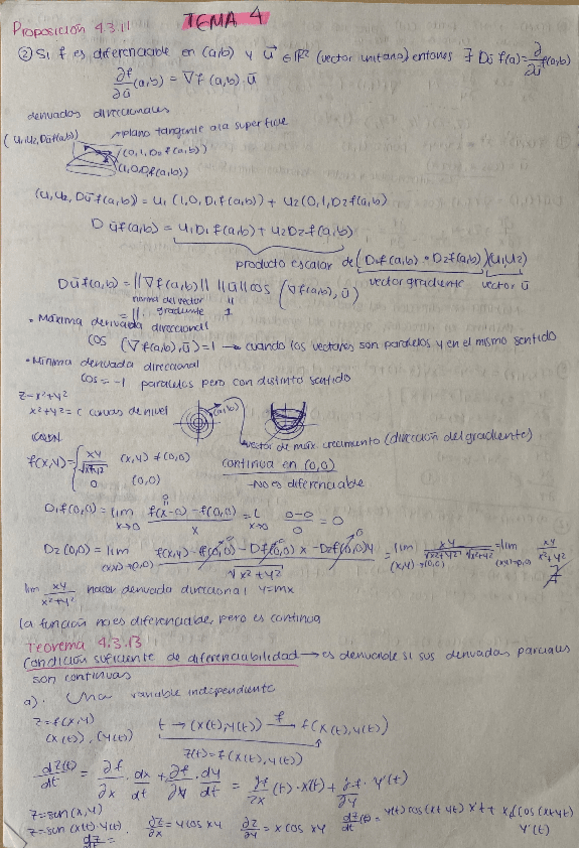 Proposición 4.3.11
TEMA 4
② Si f es diferenciable en (a,b) y u⃗ ∈ ℝ² (vector unitario) entonces ∃ Dūf(a) = ∂/∂ū f(a,b)
∂f/∂ū (a,b) = ∇f(a,b) . ū
derivadas direccionales
(u₁,u₂,Dūf(a,b))
→plano tangente a la superficie
(0,1,D₂f(a,b))
(1,0,D₁f(a,b))
(u₁,u₂, Dūf(a,b)) = u₁ (1,0,D₁f(a,b)) + u₂ (0,1,D₂f(a,b))
Dūf(a,b) = u₁D₁f(a,b) + u₂D₂f(a,b)
producto escalar de (D₁f(a,b) · D₂f(a,b))(u₁,u₂)
vector gradiente vector ū
Dūf(a,b) = ||∇f(a,b)|| ||ū|| cos (∇f(a,b), ū)
norma del vector gradiente
1
· Máxima derivada direccional
cos (∇f(a,b),ū) = 1 → cuando los vectores son paralelos y en el mismo sentido
· Mínima derivada direccional
cos = -1 paralelos pero con distinto sentido
z = x²+y²
x²+y² = c curvas de nivel
(a,b)
vector de máx. crecimiento (dirección del gradiente)
f(x,y) = { xy/√x²+y² (x,y) ≠ (0,0)
0 (0,0)
continua en (0,0)
-No es diferenciable
D₁f(0,0) = lim x→0 f(x-0) - f(0,0) / x = L x→0 0-0/0 = 0
D₂(0,0) = lim (x,y)→(0,0) f(x,y) - f(0,0) - Df(0,0) x - D₂f(0,0) y / √x²+y² = lim (x,y)→(0,0) xy / √x²+y² √x²+y² = lim (x,y)→0,0 xy / x²+y² ∄
lim xy / x²+y² hacer derivada direccional y=mx
la función no es diferenciable, pero es continua
Teorema 4.3.13
Condición suficiente de diferenciabilidad → es derivable si sus derivadas parciales
son continuas
a). Una variable independiente
z = f(x,y)
(x(t)), (y(t))
t → (x(t),y(t)) f→ f(x(t),y(t))
z(t) = f(x(t),y(t))
dz(t)/dt = ∂f/∂x · dx/dt + ∂f/∂y · dy/dt = ∂f/∂x (t) · x'(t) + ∂f/∂y · y'(t)
z = sen(x,y)
z = sen(x(t)·y(t)) ∂z/∂x = y cos xy ∂z/∂y = x cos xy dz/dt (t) = y(t) cos(xt yt) x't + x(t) cos(xt yt)
dz/dt =
y'(t)